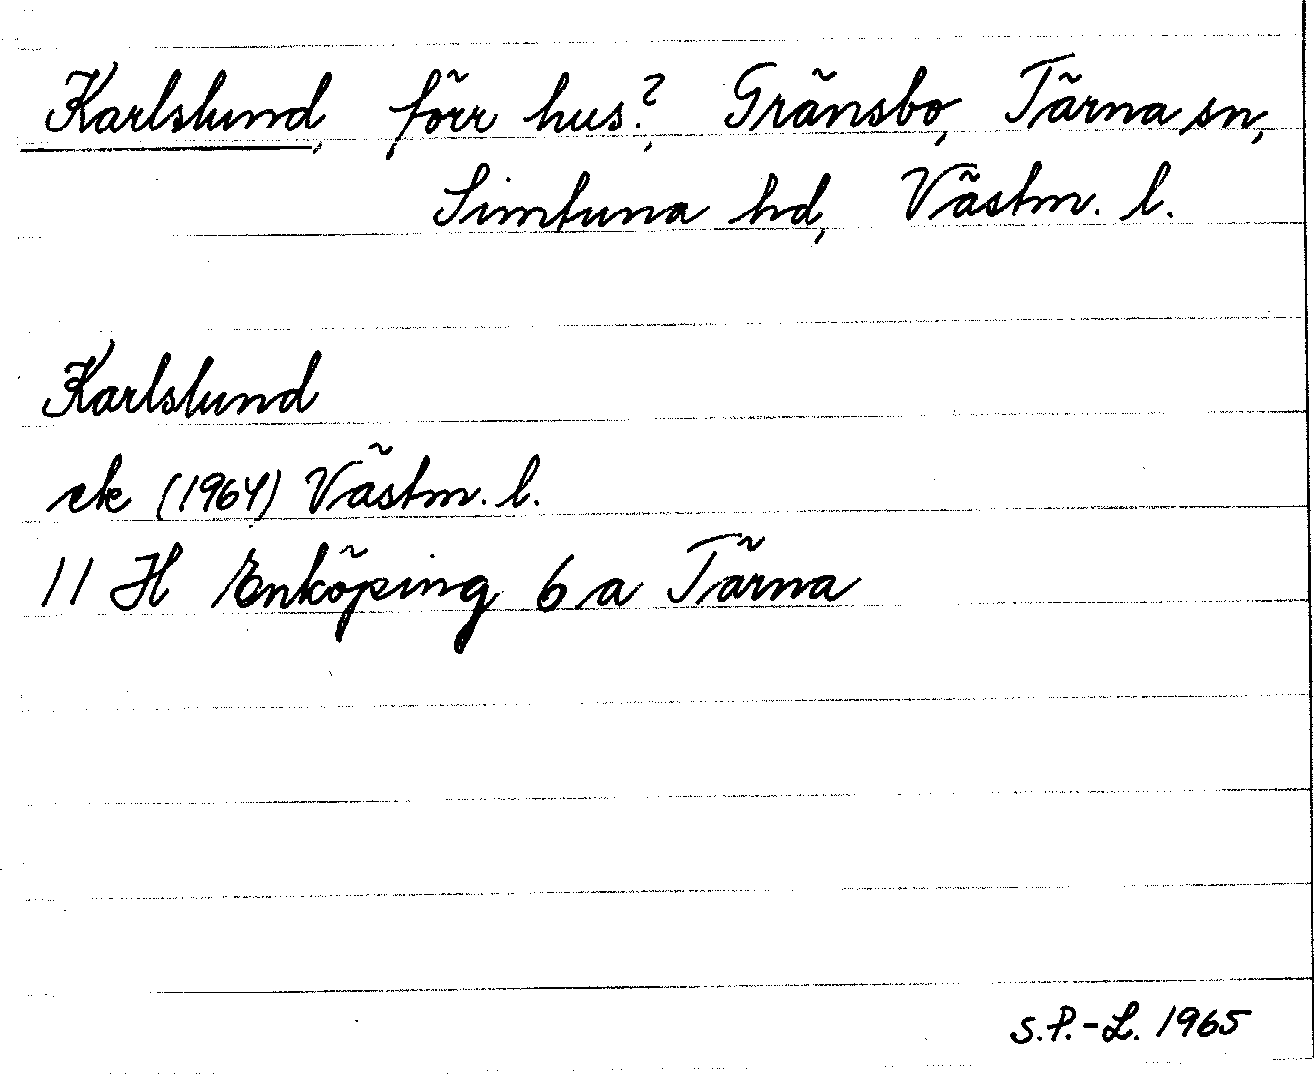 Karlslund, förr hus?, Gränsbo, Tärna sn,
Simtuna hd, Västm. l.
Karlslund
ek (1964) Västm. l.
11 H Enköping 6 a Tärna
S.P.-L. 1965